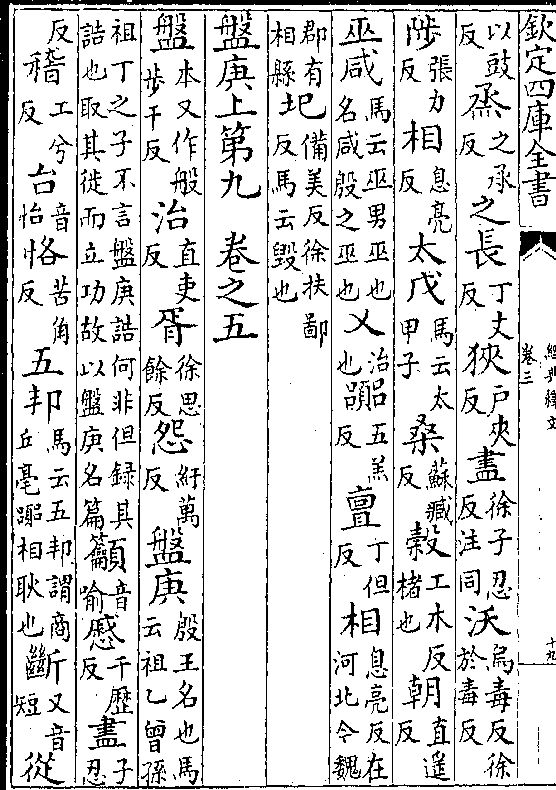 欽定四庫全書 經典釋文 卷三 十九
以豉反烝之承反之長丁丈反狹戶夾反盡徐子忍反注同沃烏毒反徐於毒反
陟張力反相息亮反太戊馬云太甲子桑蘇臧反榖工木反楮也朝直遥反
巫咸馬云巫男巫也名咸殷之巫也乂治也嚻五羔反亶丁但反相息亮反在河北今魏
郡有相縣圯備美反徐扶鄙反馬云毁也
盤庚上第九 卷之五
盤本又作般步干反治直吏反胥徐思餘反怨紆萬反盤庚殷王名也馬云祖乙曾孫
祖丁之子不言盤庚誥何非但録其誥也取其徙而立功故以盤庚名篇籲音喻慼千歷反盡子忍
反稽工兮反台音怡恪苦角反五邦馬云五邦謂商丘亳嚻相耿也斷又音短從